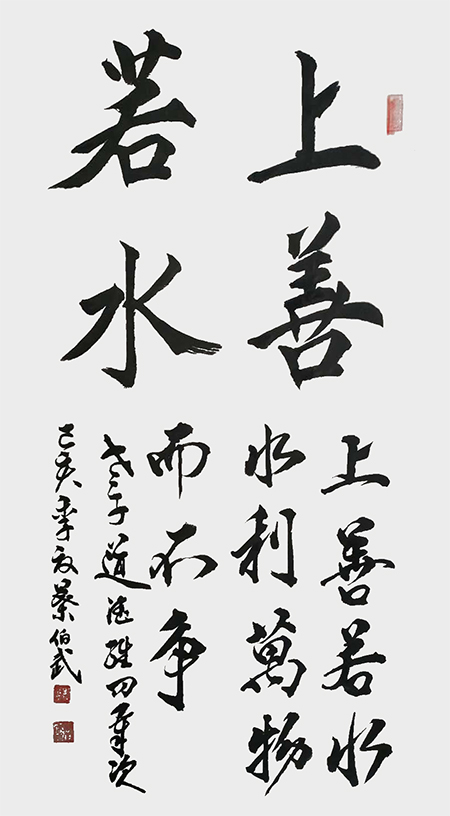 上善
若水
上善若水
水利萬物
而不争
老子道德經
己亥季蔡伯武